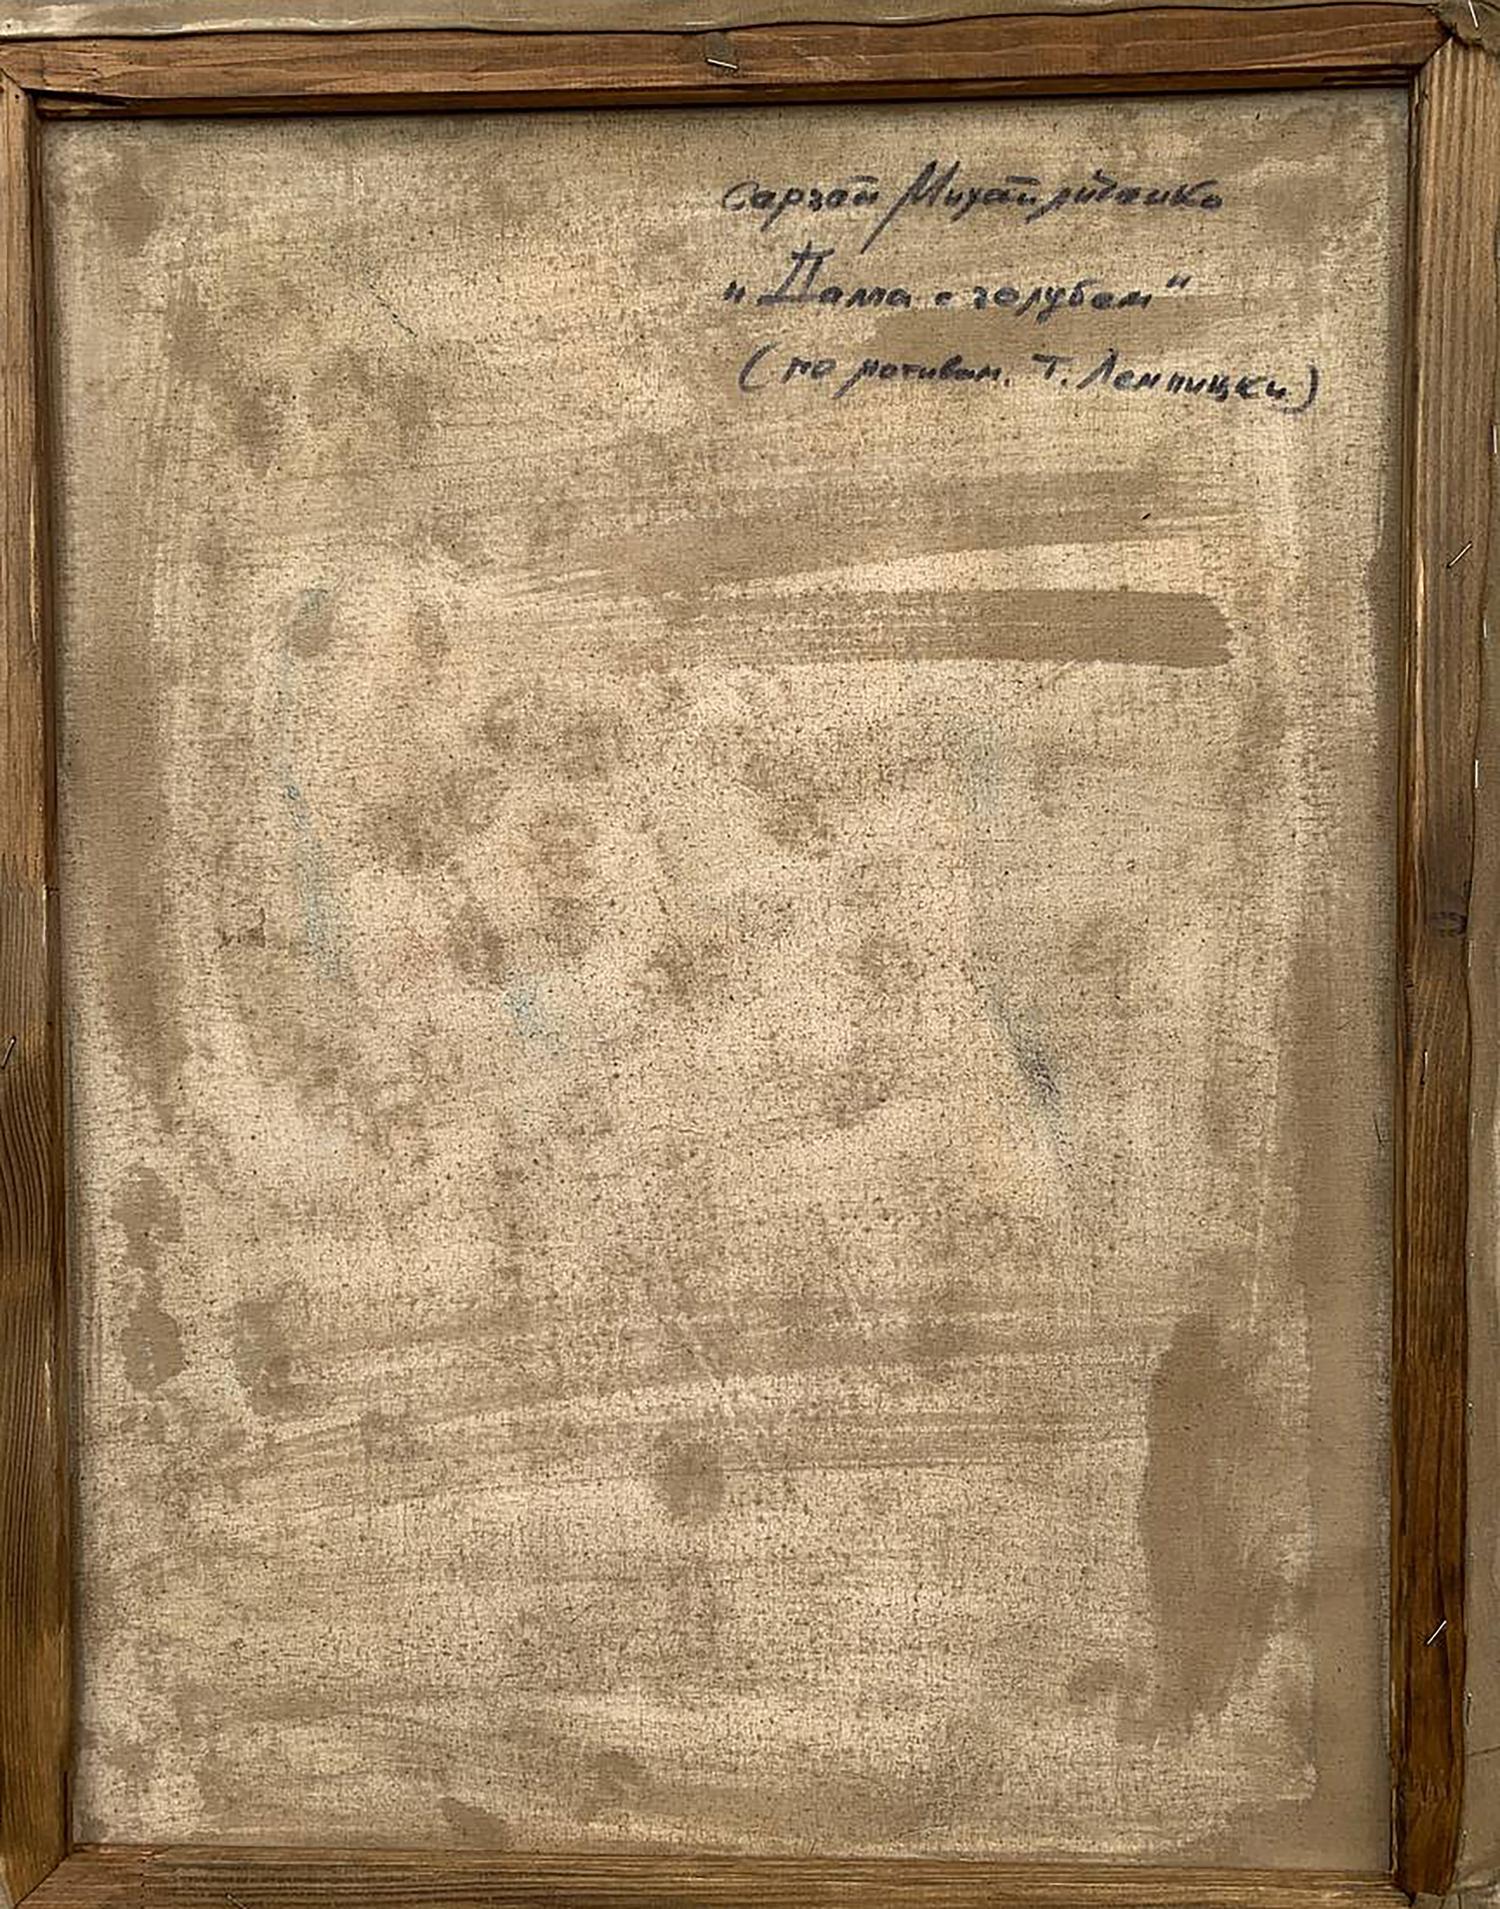 Сергей Михайличенко
„Дама с голубем"
(по мотивам. Т. Лемпицки)